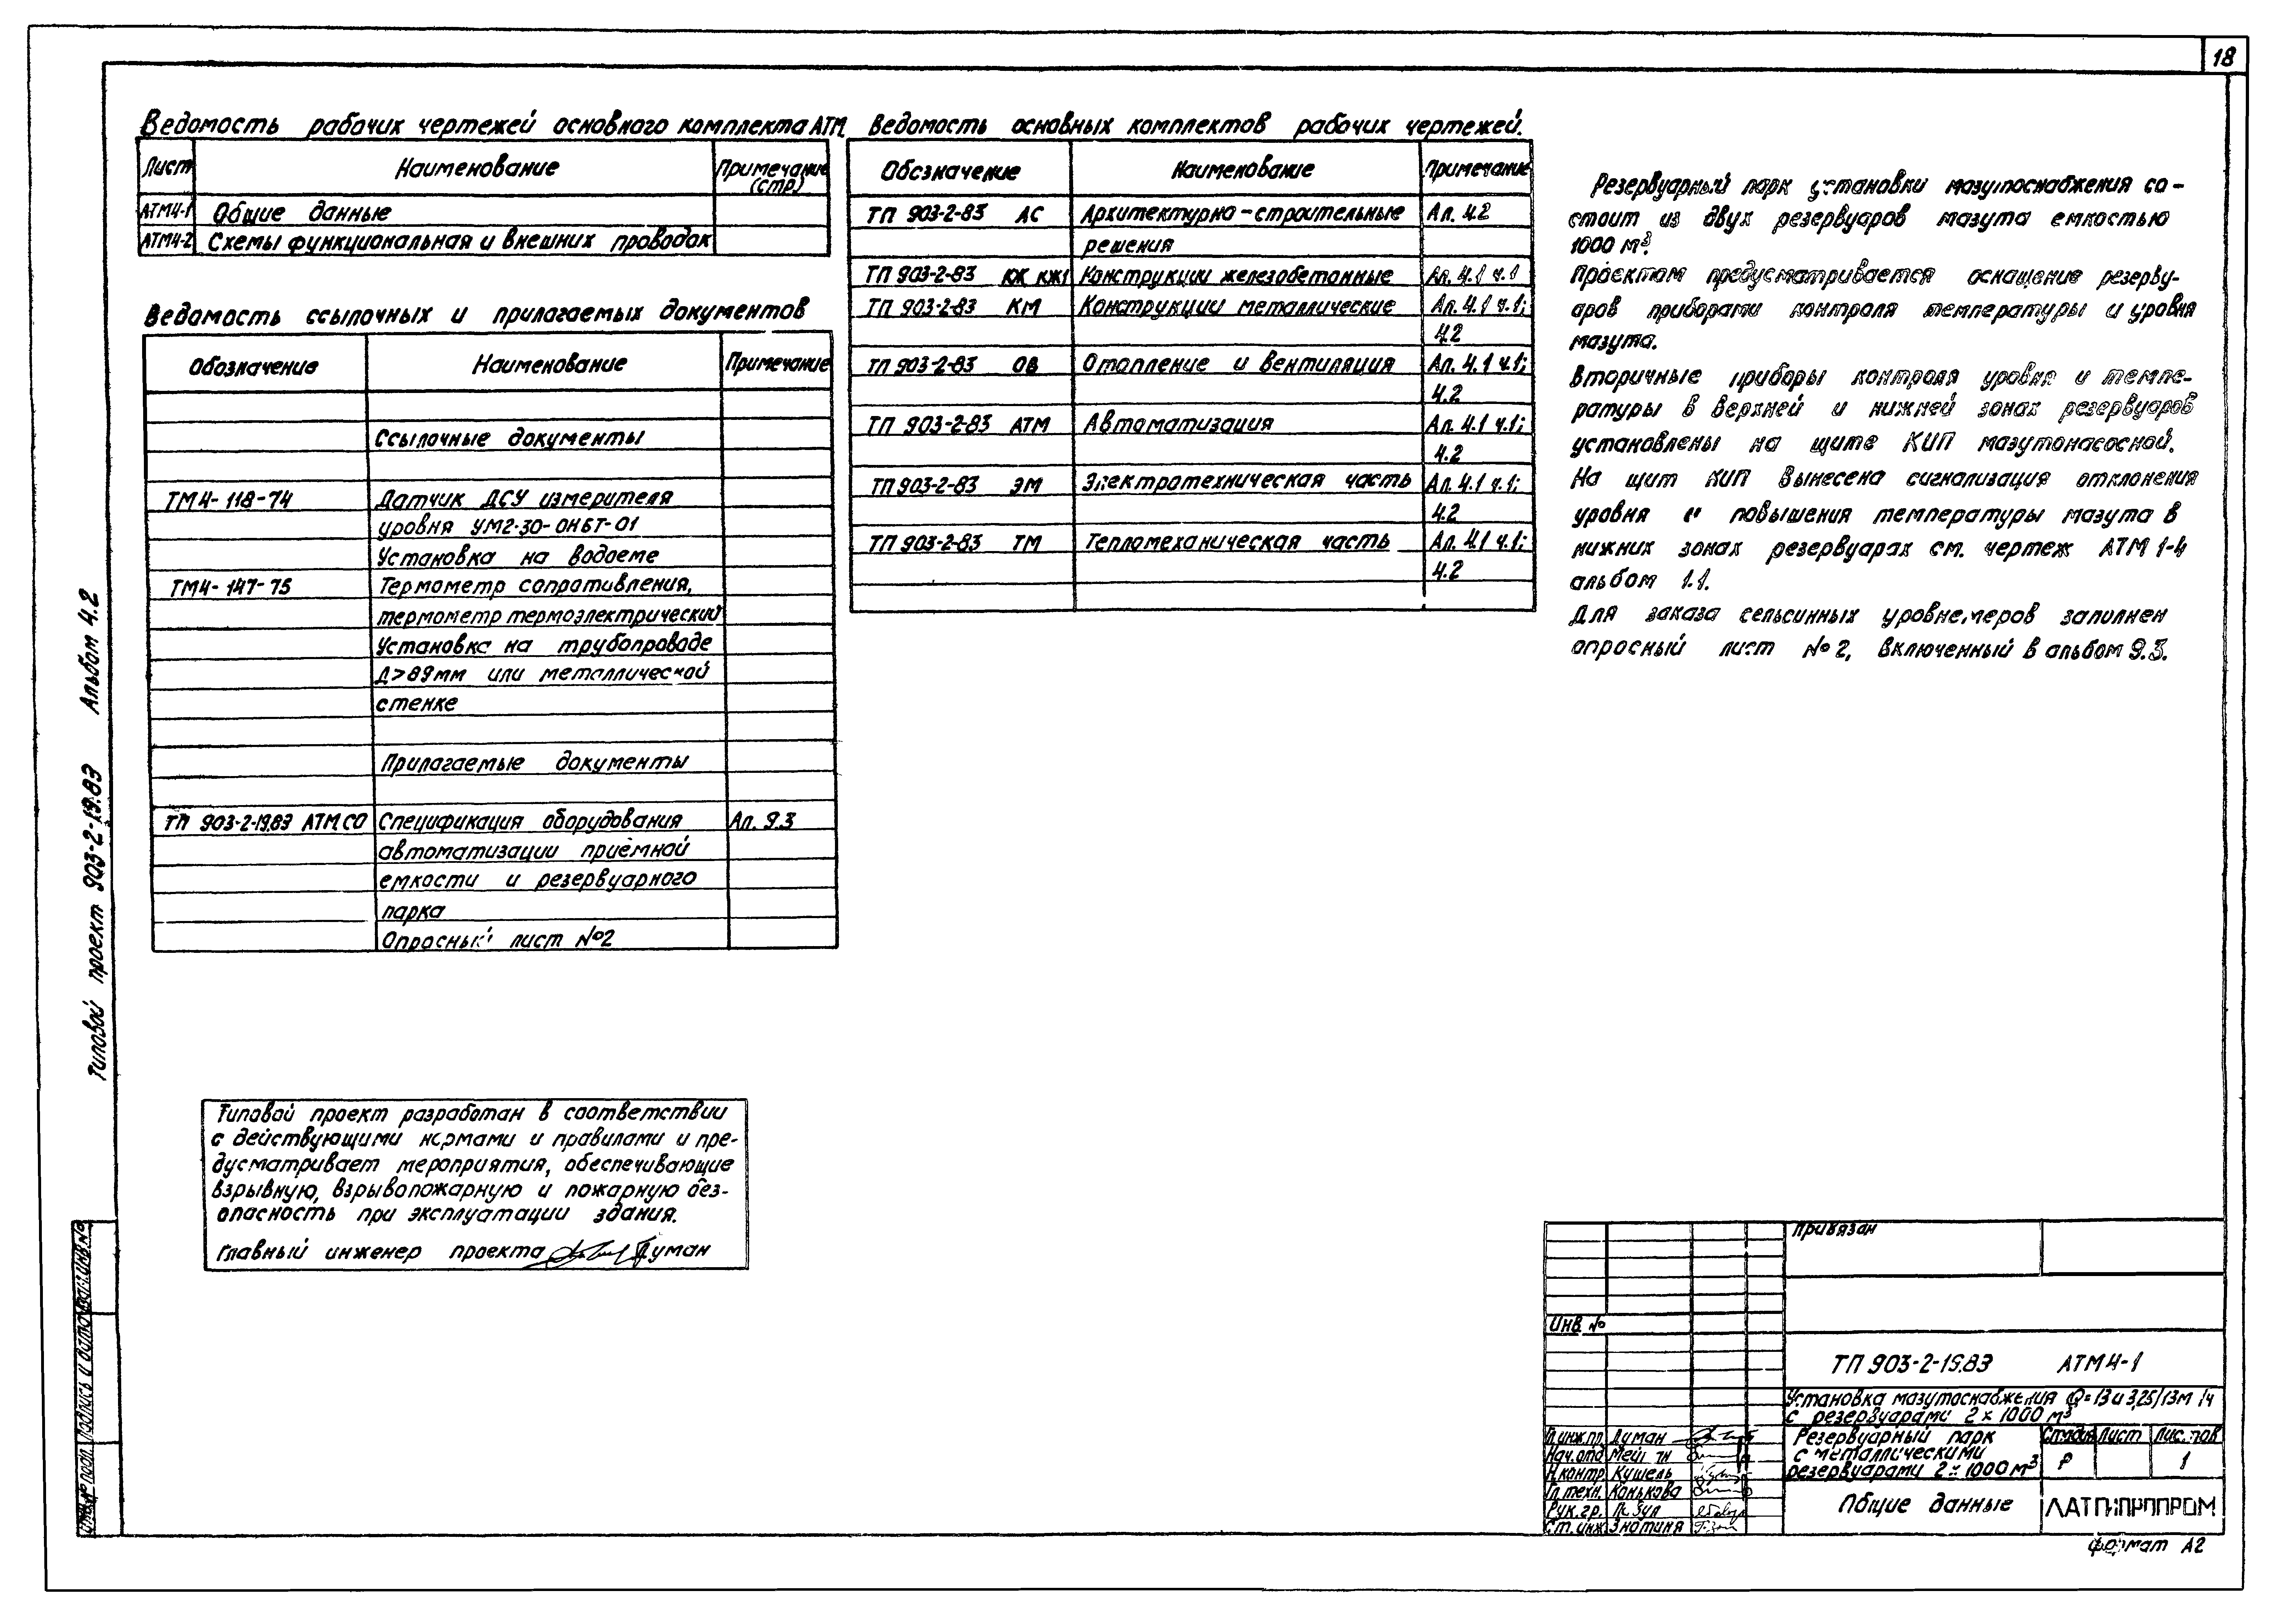 18
Ведомость рабочих чертежей основного комплекта АТМ
Лист Наименование Примечание (стр)
АТМ4-1 Общие данные
АТМ4-2 Схемы функциональная и внешних проводок
Ведомость ссылочных и прилагаемых документов
Обозначение Наименование Примечание
Ссылочные документы
ТМ4-118-74 Датчик ДСУ измерителя
уровня УМ2-30-ОНБТ-01
Установка на водоеме
ТМ4-147-75 Термометр сопротивления,
термометр термоэлектрический
Установка на трубопроводе
Д>89мм или металлической
стенке
Прилагаемые документы
ТП 903-2-19.83 АТМ.СО Спецификация оборудования Ал. 9.3
автоматизации приёмной
емкости и резервуарного
парка
Опросный лист №2
Ведомость основных комплектов рабочих чертежей.
Обозначение Наименование Примечание
ТП 903-2-83 АС Архитектурно-строительные Ал. 4.2
решения
ТП 903-2-83 КЖ КЖ1 Конструкции железобетонные Ал. 4.1 ч.1
ТП 903-2-83 КМ Конструкции металлические Ал. 4.1 ч.1;
4.2
ТП 903-2-83 ОВ Отопление и вентиляция Ал. 4.1 ч.1;
4.2
ТП 903-2-83 АТМ Автоматизация Ал. 4.1 ч.1;
4.2
ТП 903-2-83 ЭМ Электротехническая часть Ал. 4.1 ч.1;
4.2
ТП 903-2-83 ТМ Тепломеханическая часть Ал. 4.1 ч.1;
4.2
Резервуарный парк установки мазутоснабжения со-
стоит из двух резервуаров мазута емкостью
1000 м³.
Проектом предусматривается оснащение резерву-
аров приборами контроля температуры и уровня
мазута.
Вторичные приборы контроля уровня и темпе-
ратуры в верхней и нижней зонах резервуаров
установлены на щите КИП мазутонасосной.
На щит КИП вынесена сигнализация отклонения
уровня и повышения температуры мазута в
нижних зонах резервуарах см. чертеж АТМ 1-4
альбом 1.1.
Для заказа сельсинных уровнемеров заполнен
опросный лист №2, включенный в альбом 9.3.
Типовой проект 903-2-19.83 Альбом 4.2
Типовой проект разработан в соответствии
с действующими нормами и правилами и пре-
дусматривает мероприятия, обеспечивающие
взрывную, взрывопожарную и пожарную без-
опасность при эксплуатации здания.
Главный инженер проекта Думан
Инв.№ подл. Подпись и дата Взам.инв.№
Привязан
Инв. №
ТП 903-2-19.83 АТМ4-1
Установка мазутоснабжения Q=13 и 3,25/13м³/ч
с резервуарами 2×1000 м³
Гл.инж.пр. Думан
Нач.отд
Н.контр. Кушель
Гл.техн. Конькова
Рук.гр.
Ст.инж. Знотиня
Резервуарный парк
с металлическими
резервуарами 2×1000м³
Стадия Лист Листов
Р 1
Общие данные
ЛАТГИПРОПРОМ
Формат А2